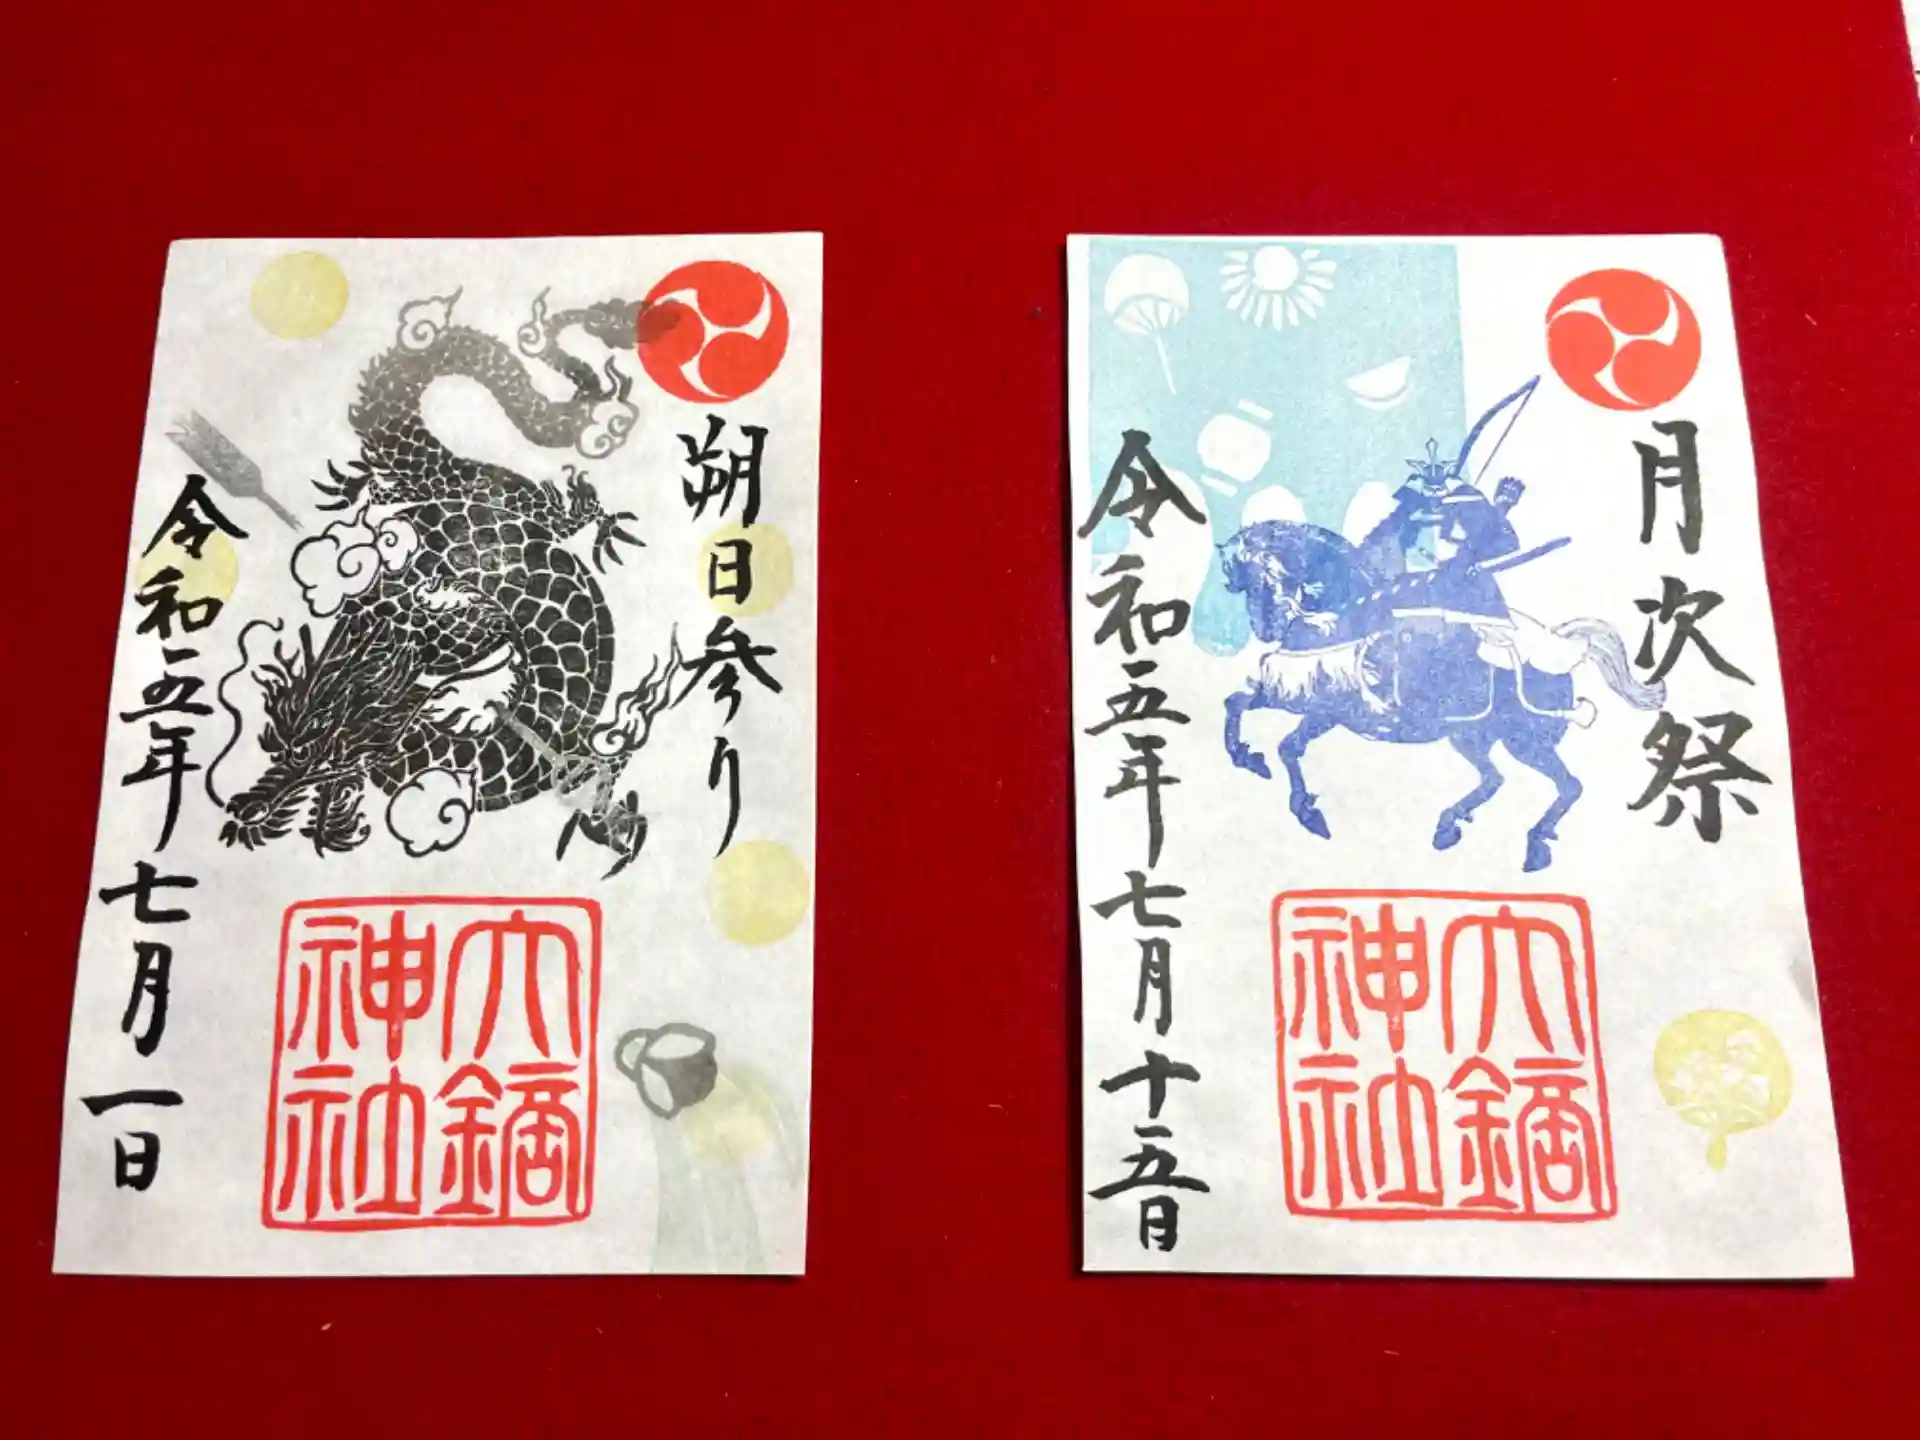 朔日参り
令和五年七月一日
六鏑
神社
月次祭
令和五年七月十五日
六鏑
神社